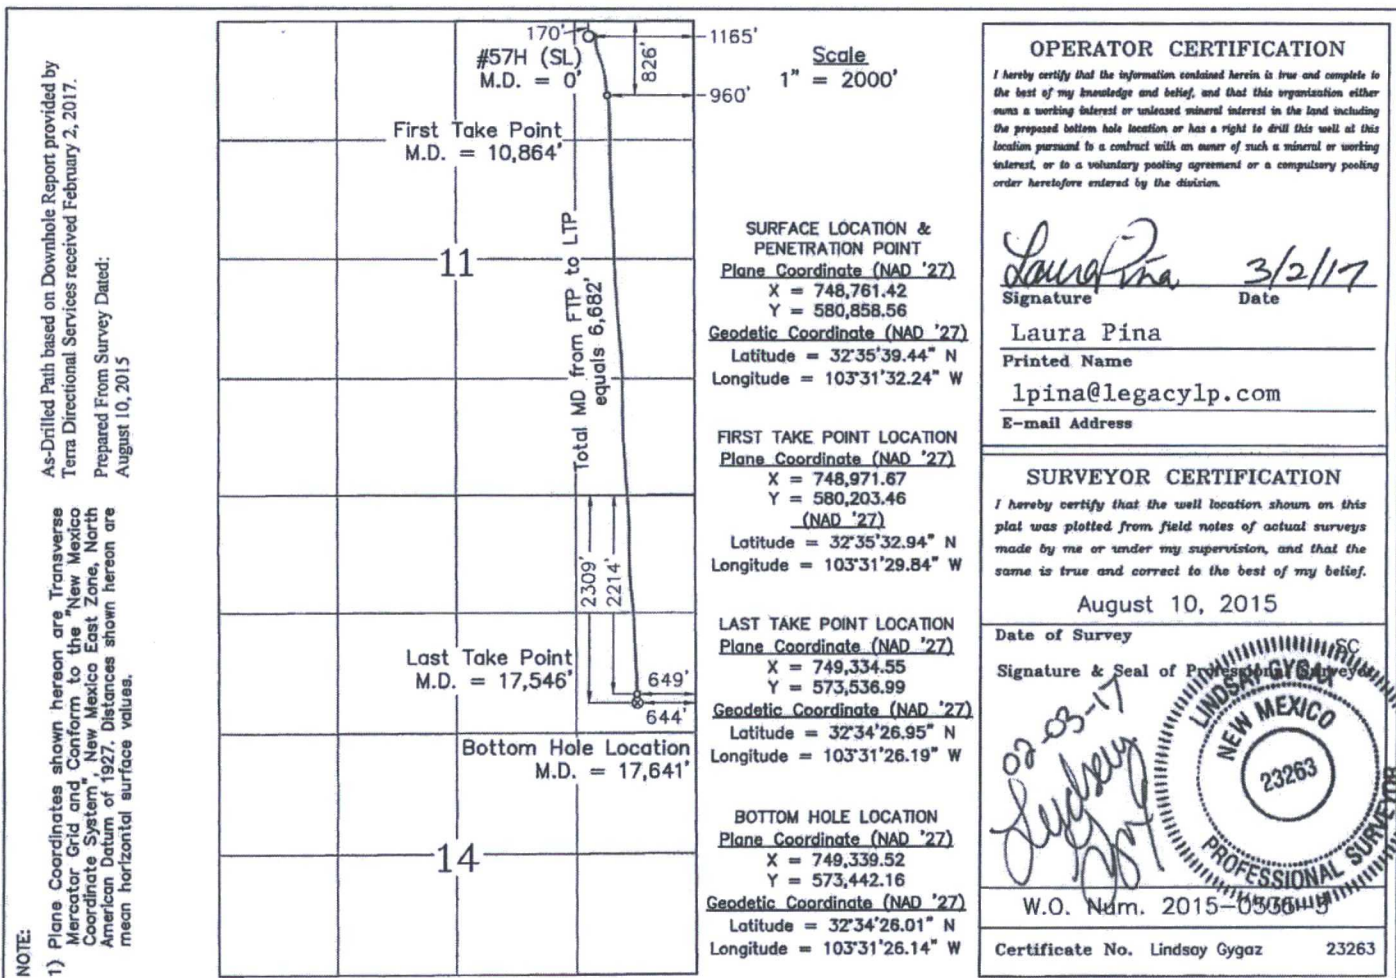 NOTE:
1) Plane Coordinates shown hereon are Transverse
Mercator Grid and Conform to the "New Mexico
Coordinate System", New Mexico East Zone, North
American Datum of 1927. Distances shown hereon are
mean horizontal surface values.
As-Drilled Path based on Downhole Report provided by
Terra Directional Services received February 2, 2017.
Prepared From Survey Dated:
August 10, 2015
170'
1165'
#57H (SL)
M.D. = 0'
826'
960'
Scale
1" = 2000'
First Take Point
M.D. = 10,864'
11
Total MD from FTP to LTP
equals 6,682'
2309'
2214'
Last Take Point
M.D. = 17,546'
649'
644'
Bottom Hole Location
M.D. = 17,641'
14
SURFACE LOCATION &
PENETRATION POINT
Plane Coordinate (NAD '27)
X = 748,761.42
Y = 580,858.56
Geodetic Coordinate (NAD '27)
Latitude = 32°35'39.44" N
Longitude = 103°31'32.24" W
FIRST TAKE POINT LOCATION
Plane Coordinate (NAD '27)
X = 748,971.67
Y = 580,203.46
(NAD '27)
Latitude = 32°35'32.94" N
Longitude = 103°31'29.84" W
LAST TAKE POINT LOCATION
Plane Coordinate (NAD '27)
X = 749,334.55
Y = 573,536.99
Geodetic Coordinate (NAD '27)
Latitude = 32°34'26.95" N
Longitude = 103°31'26.19" W
BOTTOM HOLE LOCATION
Plane Coordinate (NAD '27)
X = 749,339.52
Y = 573,442.16
Geodetic Coordinate (NAD '27)
Latitude = 32°34'26.01" N
Longitude = 103°31'26.14" W
OPERATOR CERTIFICATION
I hereby certify that the information contained herein is true and complete to
the best of my knowledge and belief, and that this organization either
owns a working interest or unleased mineral interest in the land including
the proposed bottom hole location or has a right to drill this well at this
location pursuant to a contract with an owner of such a mineral or working
interest, or to a voluntary pooling agreement or a compulsory pooling
order heretofore entered by the division.
Laura Pina 3/2/17
Signature Date
Laura Pina
Printed Name
lpina@legacylp.com
E-mail Address
SURVEYOR CERTIFICATION
I hereby certify that the well location shown on this
plat was plotted from field notes of actual surveys
made by me or under my supervision, and that the
same is true and correct to the best of my belief.
August 10, 2015
Date of Survey
SC
Signature & Seal of Professional Surveyor
02-03-17
LINDSAY GYGAX
NEW MEXICO
23263
PROFESSIONAL SURVEYOR
W.O. Num. 2015-
Certificate No. Lindsay Gygax 23263